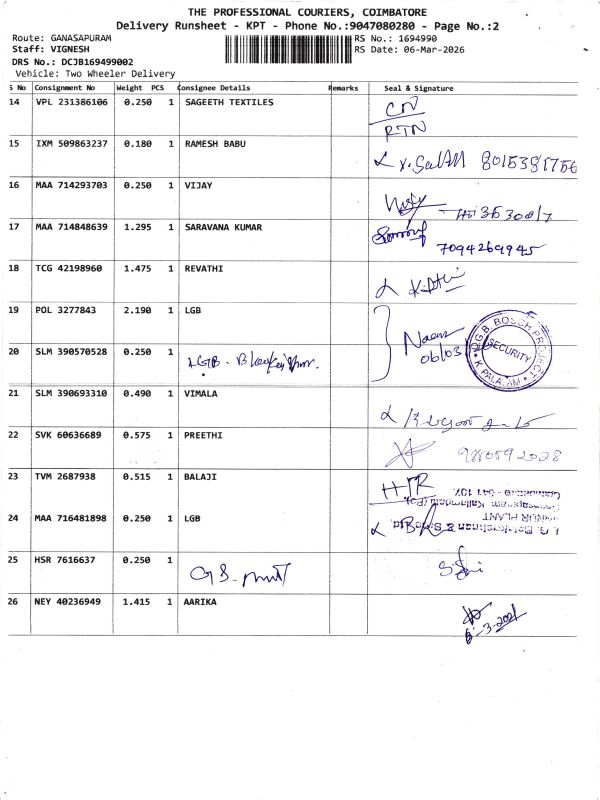 THE PROFESSIONAL COURIERS, COIMBATORE
Delivery Runsheet - KPT - Phone No.:9047080280 - Page No.:2
Route: GANASAPURAM
RS No.: 1694990
Staff: VIGNESH
RS Date: 06-Mar-2026
DRS No.: DCJB169499002
Vehicle: Two Wheeler Delivery
S No Consignment No Weight PCS Consignee Details Remarks Seal & Signature
14 VPL 231386106 0.250 1 SAGEETH TEXTILES
RTN
15 IXM 509863237 0.180 1 RAMESH BABU
16 MAA 714293703 0.250 1 VIJAY
17 MAA 714848639 1.295 1 SARAVANA KUMAR
7094269945
18 TCG 42198960 1.475 1 REVATHI
19 POL 3277843 2.190 1 LGB
20 SLM 390570528 0.250 1
LGB -
L.G.B. BOSCH PROJECT
SECURITY
K. PALAYAM
21 SLM 390693310 0.490 1 VIMALA
22 SVK 60636689 0.575 1 PREETHI
23 TVM 2687938 0.515 1 BALAJI
24 MAA 716481898 0.250 1 LGB
25 HSR 7616637 0.250 1
26 NEY 40236949 1.415 1 AARIKA